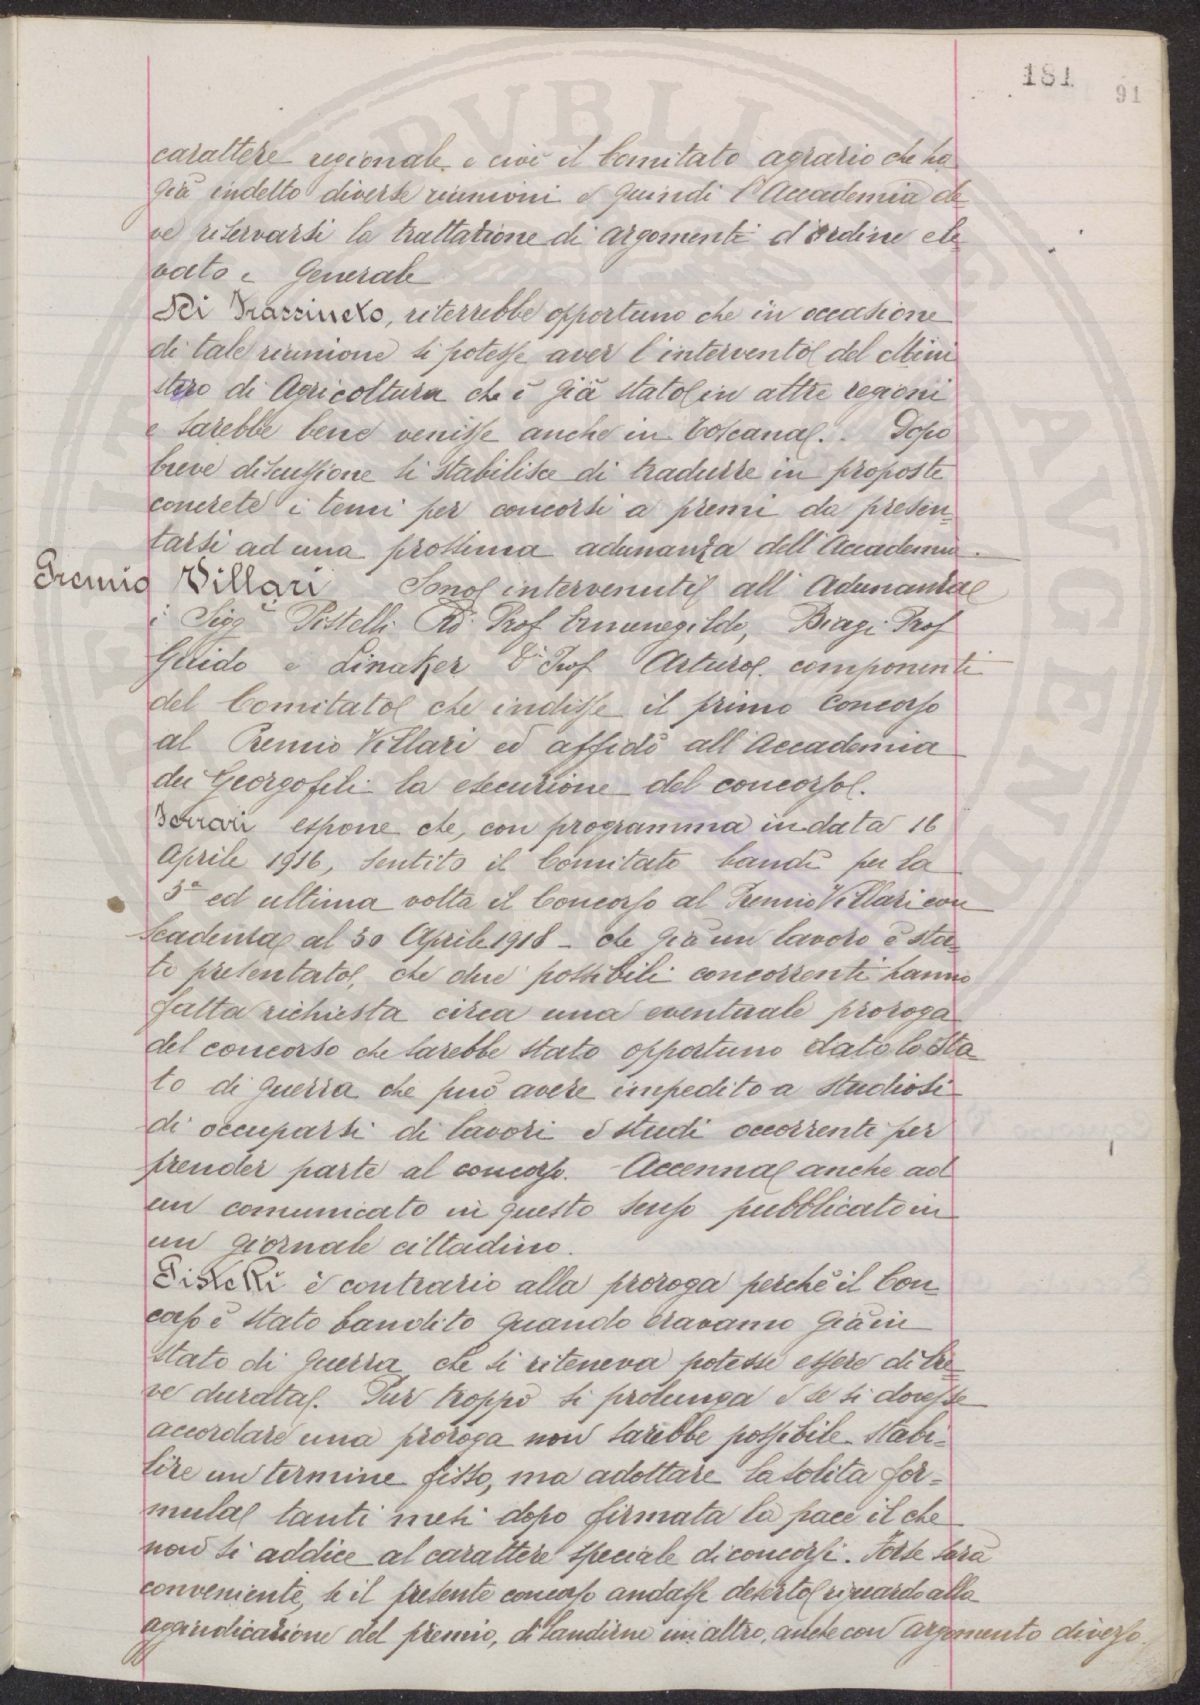 181
91
carattere regionale e cioè il Comitato agrario che ha
già indetto diverse riunioni e quindi l'Accademia de-
ve riservarsi la trattazione di argomenti d'ordine ele-
vato e generale
Di Frassineto, riterrebbe opportuno che in occasione
di tale riunione si potesse aver l'intervento del Mini
stero di Agricoltura che è già stato in altre regioni
e sarebbe bene venisse anche in Toscana. Dopo
breve discussione si stabilisce di tradurre in proposte
concrete i temi per concorsi a premi da presen-
tarsi ad una prossima adunanza dell'Accademia.
Premio Villari Sono intervenuti all'Adunanza
i Sigg. Pistelli Prof Ermenegildo, Biagi Prof
Guido e Linaker Prof Arturo componenti
del Comitato che indisse il primo Concorso
al Premio Villari ed affidò all'Accademia
dei Georgofili la esecuzione del concorso.
Ferrari espone che, con programma in data 16
Aprile 1916, sentito il Comitato bandì per la
3a ed ultima volta il Concorso al Premio Villari con
scadenza al 30 Aprile 1918 - che già un lavoro è sta-
to presentato, che due possibili concorrenti hanno
fatta richiesta circa una eventuale proroga
del concorso che sarebbe stato opportuno dato lo Sta-
to di guerra che può avere impedito a studiosi
di occuparsi di lavori e studi occorrenti per
prender parte al concorso. Accenna anche ad
un comunicato in questo senso pubblicato in
un giornale cittadino.
Pistelli è contrario alla proroga perchè il Con
corso è stato bandito quando eravamo già in
stato di guerra che si riteneva potesse essere di bre-
ve durata. Pur troppo si prolunga e se si dovesse
accordare una proroga non sarebbe possibile stabi-
lire un termine fisso, ma adottare la solita for-
mula tanti mesi dopo firmata la pace il che
non si addice al carattere speciale di concorsi. Forse sarà
conveniente, se il presente concorso andasse deserto riguardo alla
aggiudicazione del premio, di bandirne un altro, anche con argomento diverso.